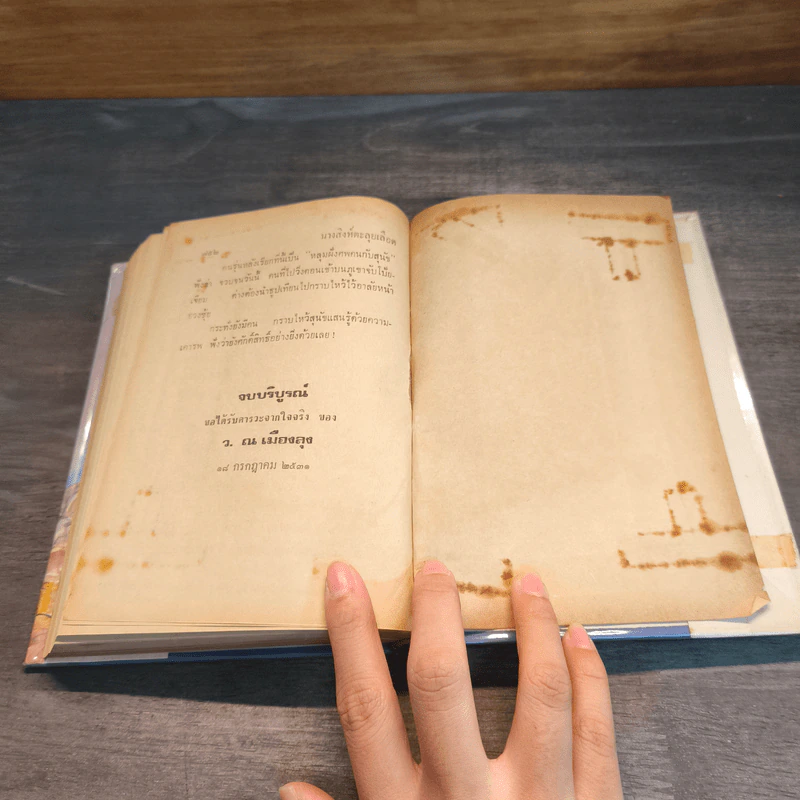 นางสิงห์ตะลุยเลือด
๗๕๒
คนรุ่นหลังเรียกที่นี้เป็น "หลุมฝังศพคนกับสุนัข"
จวบจนวันนี้ คนที่ไปวังคอนเข้าบนภูเขาขับไบ๊ย-
เซียบ ต่างต้องนำธูปเทียนไปกราบไหว้ไว้อาลัยหน้า
ฮวงซุ้ย
กระทั่งยังมีคน กราบไหว้สุนัขแสนรู้ด้วยความ-
เคารพ ฟังว่ายังศักดิ์สิทธิ์อย่างยิ่งด้วยเลย!
จบบริบูรณ์
ขอได้รับคารวะจากใจจริง ของ
ว. ณ เมืองลุง
๑๘ กรกฎาคม ๒๕๓๑